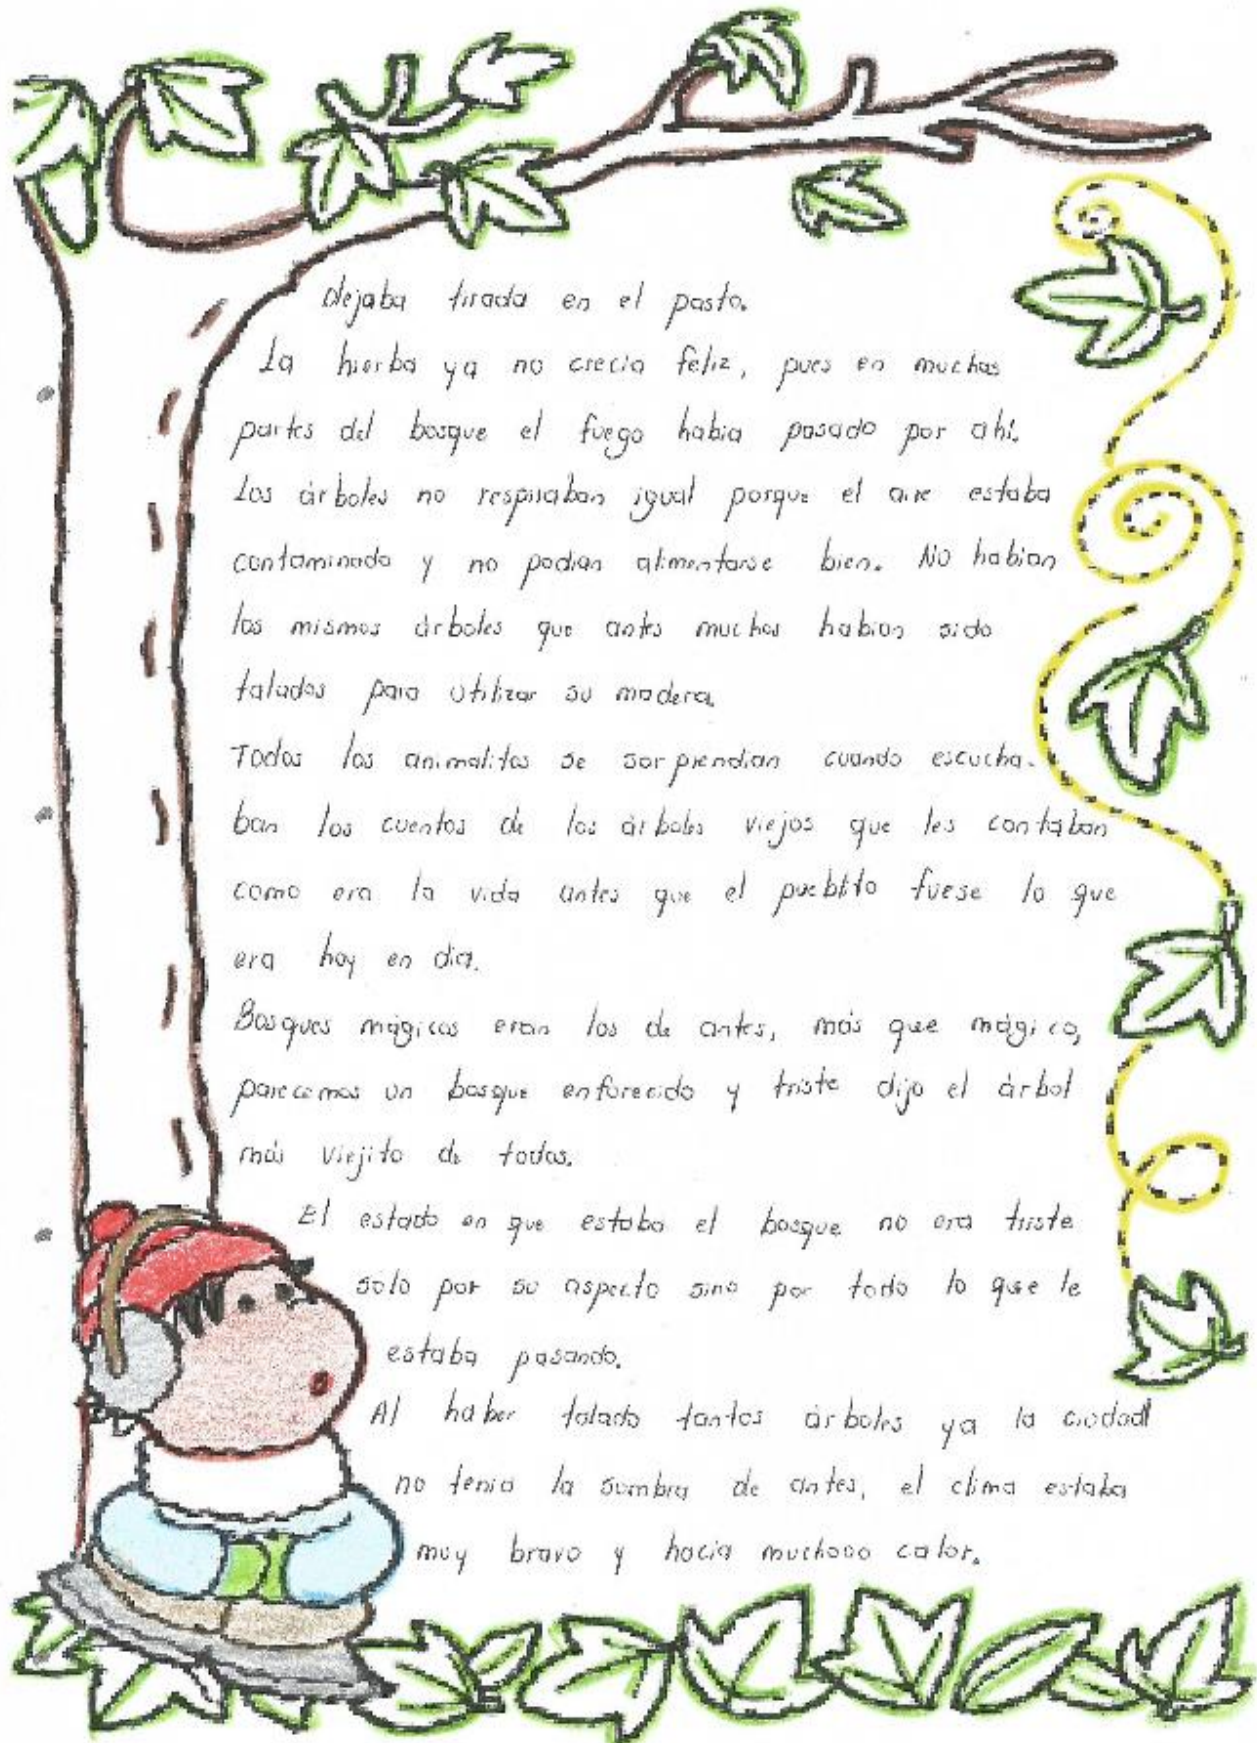 dejaba tirada en el pasto.
La hierba ya no crecia feliz, pues en muchas
partes del bosque el fuego habia pasado por ahí.
Los árboles no respiraban igual porque el aire estaba
contaminado y no podian alimentarse bien. No habian
los mismos árboles que antes muchos habian sido
talados para utilizar su madera.
Todos los animalitos se sorprendian cuando escucha-
ban los cuentos de los árboles viejos que les contaban
como era la vida antes que el pueblito fuese lo que
era hoy en dia.
Bosques mágicos eran los de antes, más que mágico,
parecemos un bosque enforecido y triste dijo el árbol
más viejito de todos.
El estado en que estaba el bosque no era triste
solo por su aspecto sino por todo lo que le
estaba pasando.
Al haber talado tantos árboles ya la ciudad
no tenia la sombra de antes, el clima estaba
muy bravo y hacia muchooo calor.